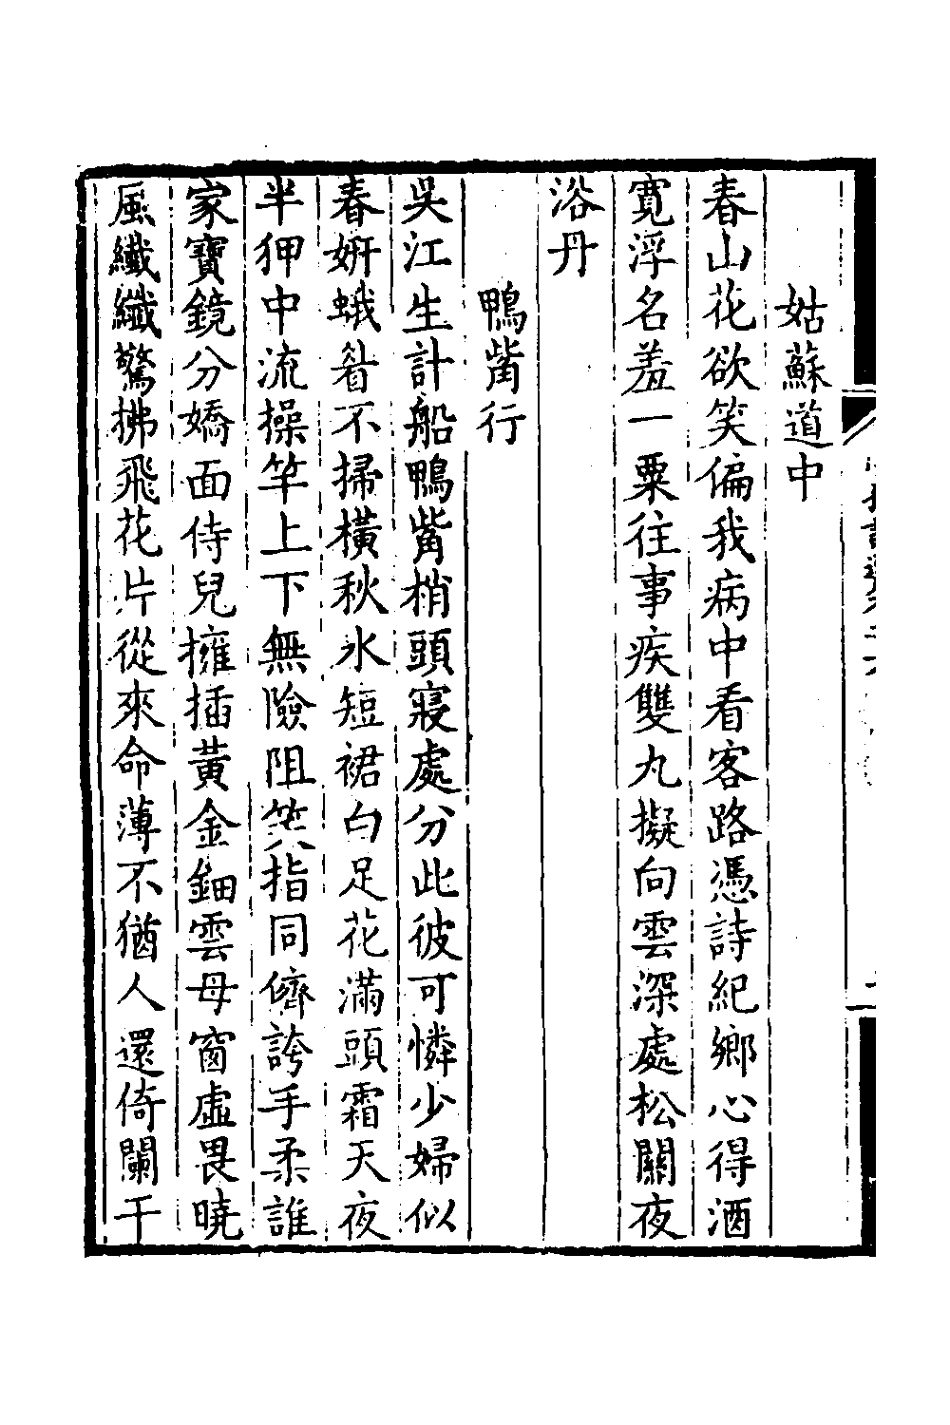 姑蘇道中
春山花欲笑偏我病中看客路憑詩紀鄉心得酒
寛浮名羞一粟往事疾雙丸擬向雲深處松關夜
浴丹
鴨觜行
吳江生計船鴨觜梢頭寢處分此彼可憐少婦似
春妍蛾眉不掃橫秋水短裙白足花滿頭霜天夜
半狎中流操竿上下無險阻笑指同儕誇手柔誰
家寶鏡分嬌面侍兒擁插黃金鈿雲母窗虛畏曉
風纖纖驚拂飛花片從來命薄不猶人還倚闌干